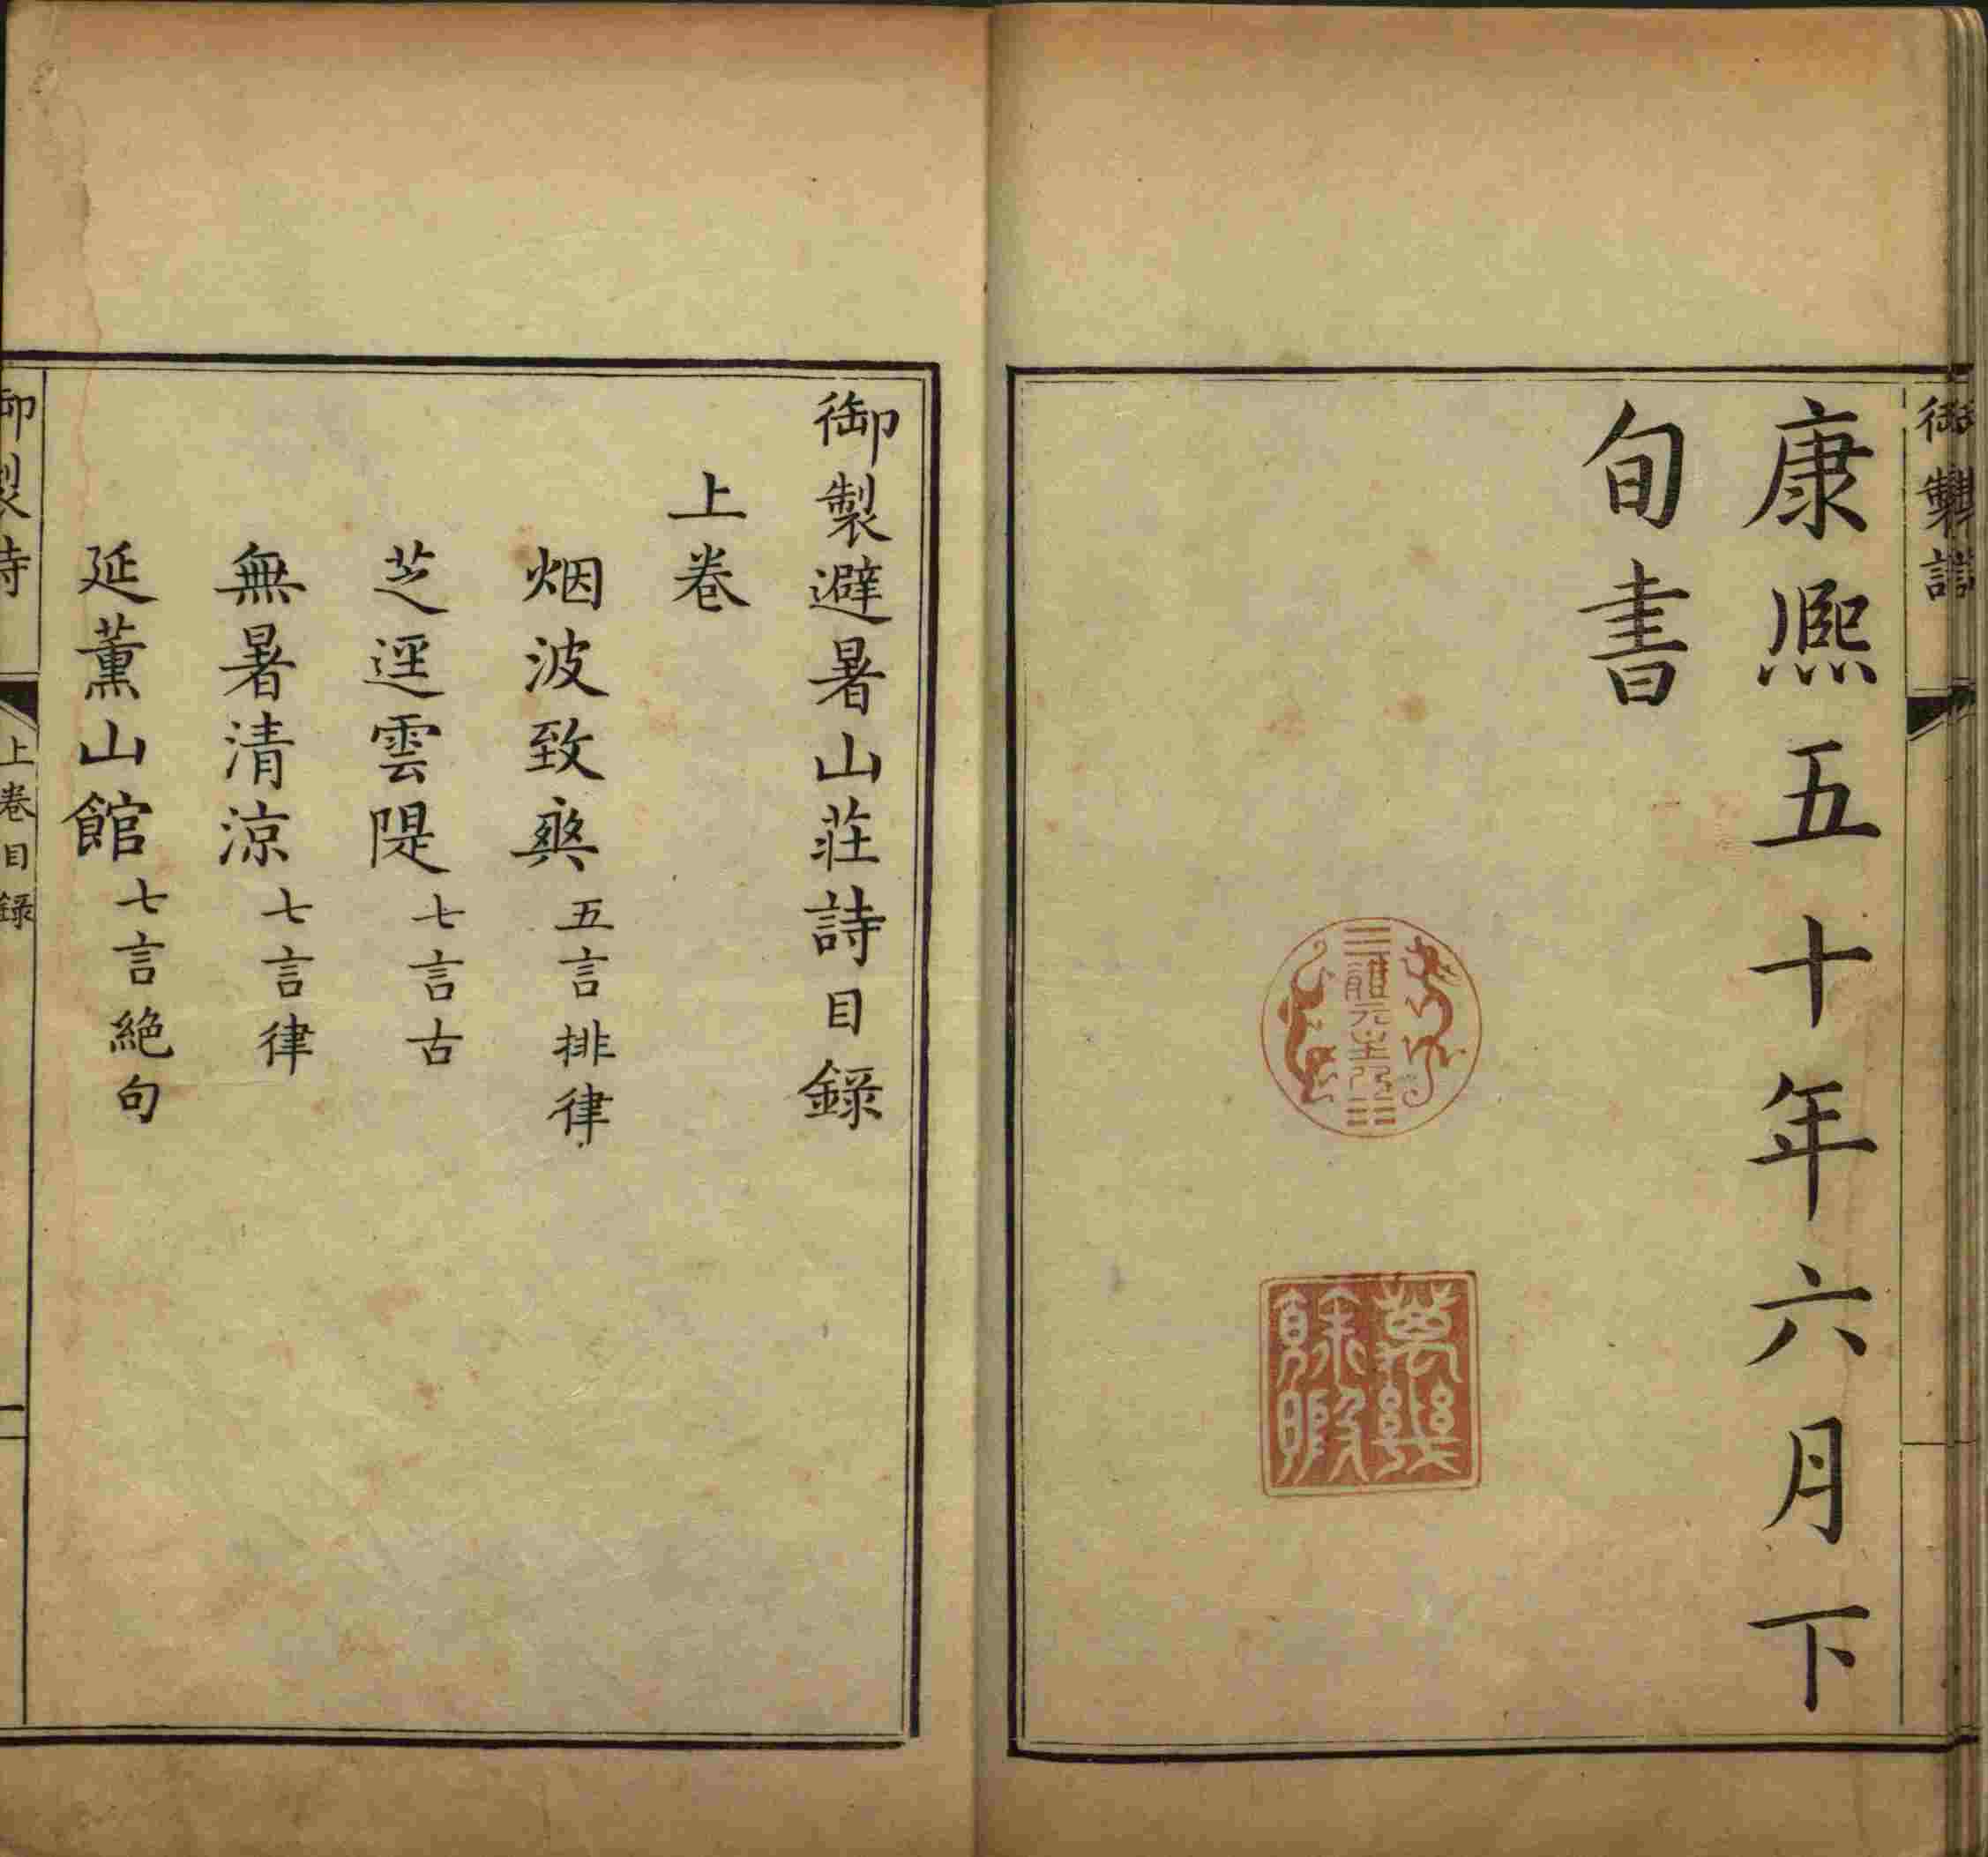 御製詩
康熙五十年六月下
旬書
體元主人
萬幾餘暇
御製避暑山莊詩目録
上卷
烟波致爽 五言排律
芝逕雲隄 七言古
無暑清涼 七言律
延薰山館 七言絶句
御製詩 上卷目録